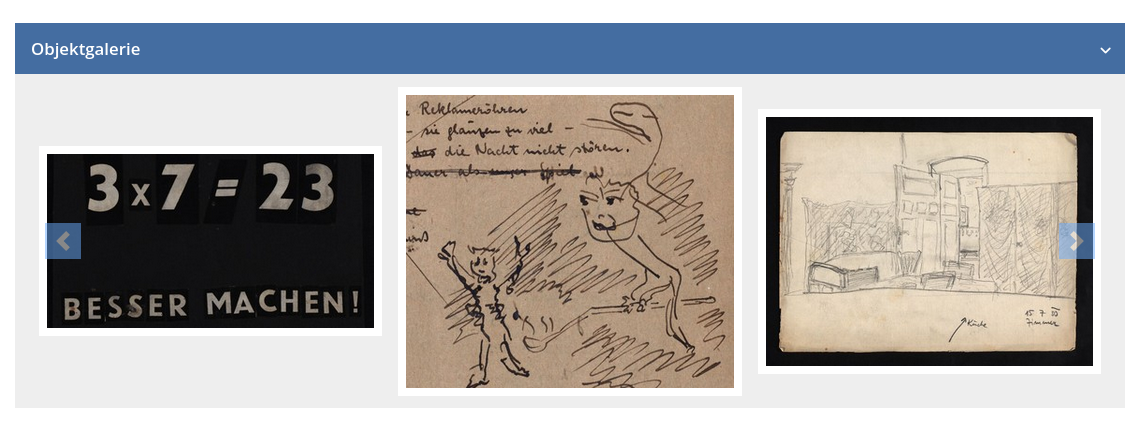 Objektgalerie
3 x 7 = 23
BESSER MACHEN!
Reklameröhren
- sie glänzen zu viel -
das die Nacht nicht stören.
Dauer als
15 7
Küche Zimmer